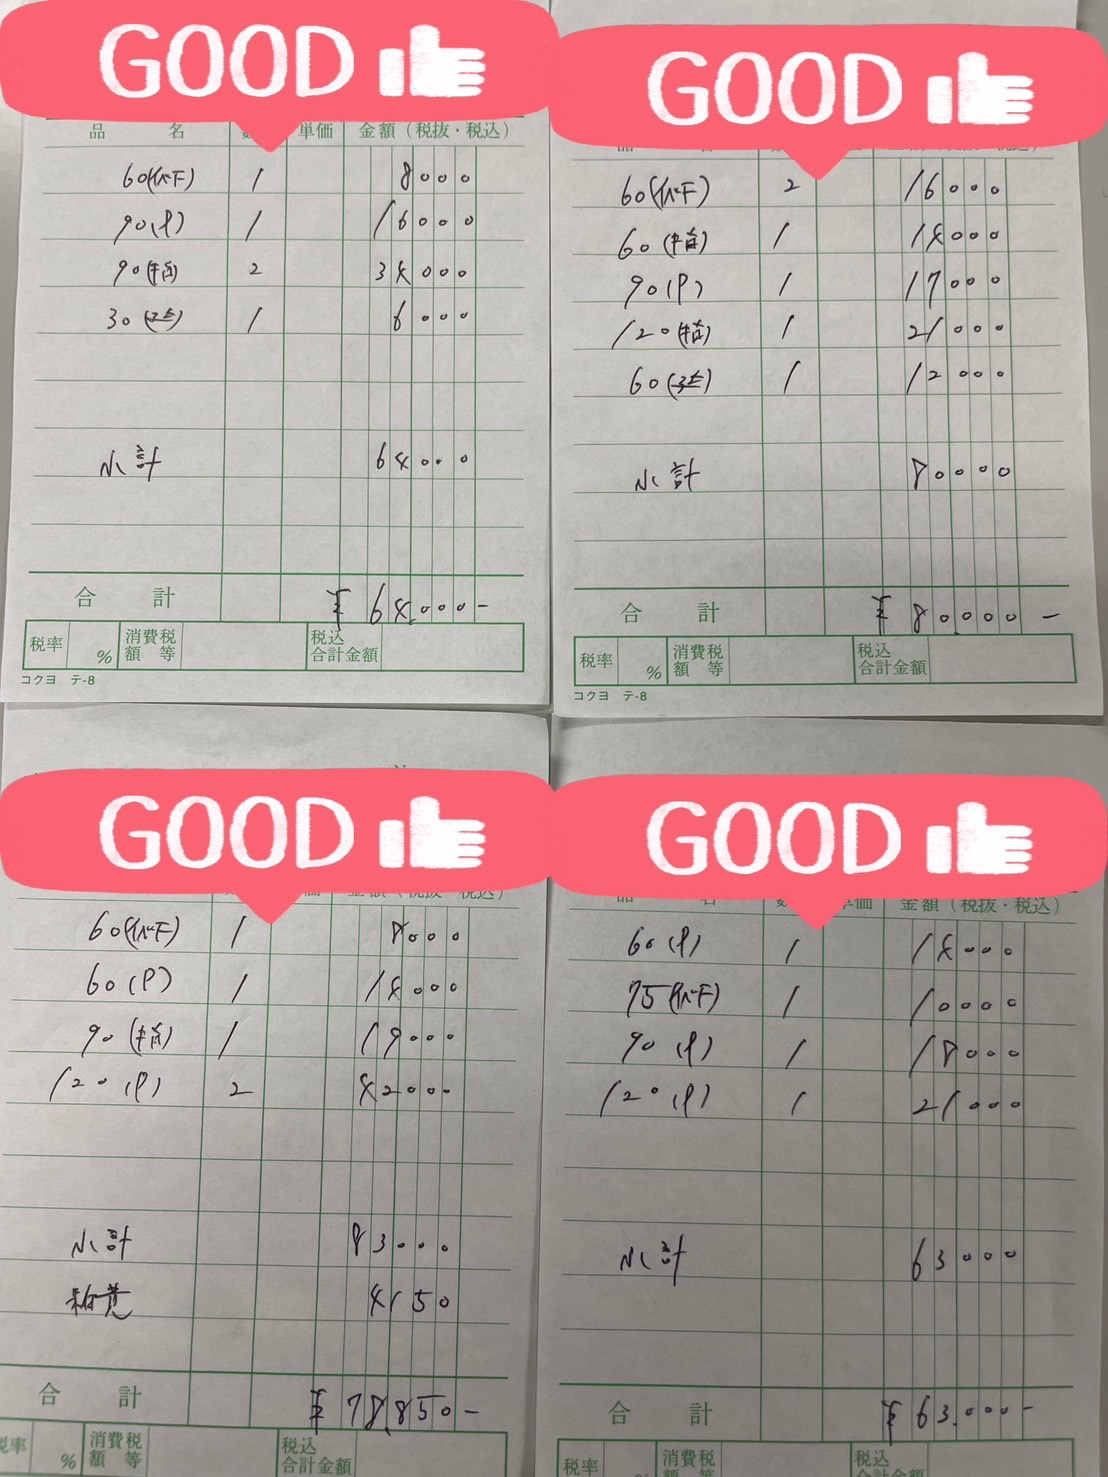 GOOD
品 名 単価 金額（税抜・税込）
60(イベ下) 1 8000
90(P) 1 16000
90(指) 2 34000
30 1 6000
小計 64000
合計 ¥64,000-
税率 % 消費税額等 税込合計金額
コクヨ テ-8
GOOD
60(イベ下) 2 16000
60(指) 1 14000
90(P) 1 17000
120(指) 1 21000
60 1 12000
小計 80000
合計 ¥80,000-
税率 % 消費税額等 税込合計金額
コクヨ テ-8
GOOD
60(イベ下) 1 8000
60(P) 1 14000
90(指) 1 19000
120(P) 2 42000
小計 83000
4150
合計 ¥78,850-
税率 % 消費税額等 税込合計金額
GOOD
名 単価 金額（税抜・税込）
60(P) 1 14000
75(イベ下) 1 10000
90(P) 1 18000
120(P) 1 21000
小計 63000
合計 ¥63,000-
税率 % 消費税額等 税込合計金額